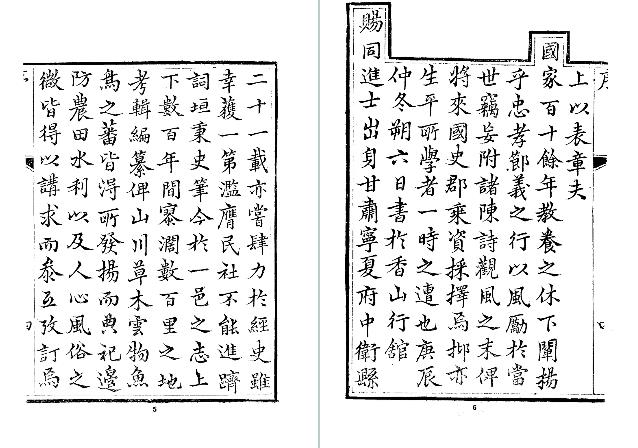 二十一載亦嘗肆力於經史雖
幸獲一第濫膺民社不能進躋
詞垣秉史筆今於一邑之志上
下數百年間寥濶數百里之地
考輯編纂俾山川草木雲物魚
鳥之蕃皆得所發揚而典祀邊
防農田水利以及人心風俗之
微皆得以講求而叅互攷訂焉
5
序
上以表章夫
國家百十餘年教養之休下闡揚
乎忠孝節義之行以風勵於當
世竊妄附諸陳詩觀風之末俾
將來國史郡乘資採擇焉抑亦
生平所學者一時之遭也庚辰
仲冬朔六日書於香山行館
賜同進士出身甘肅寧夏府中衛縣
6